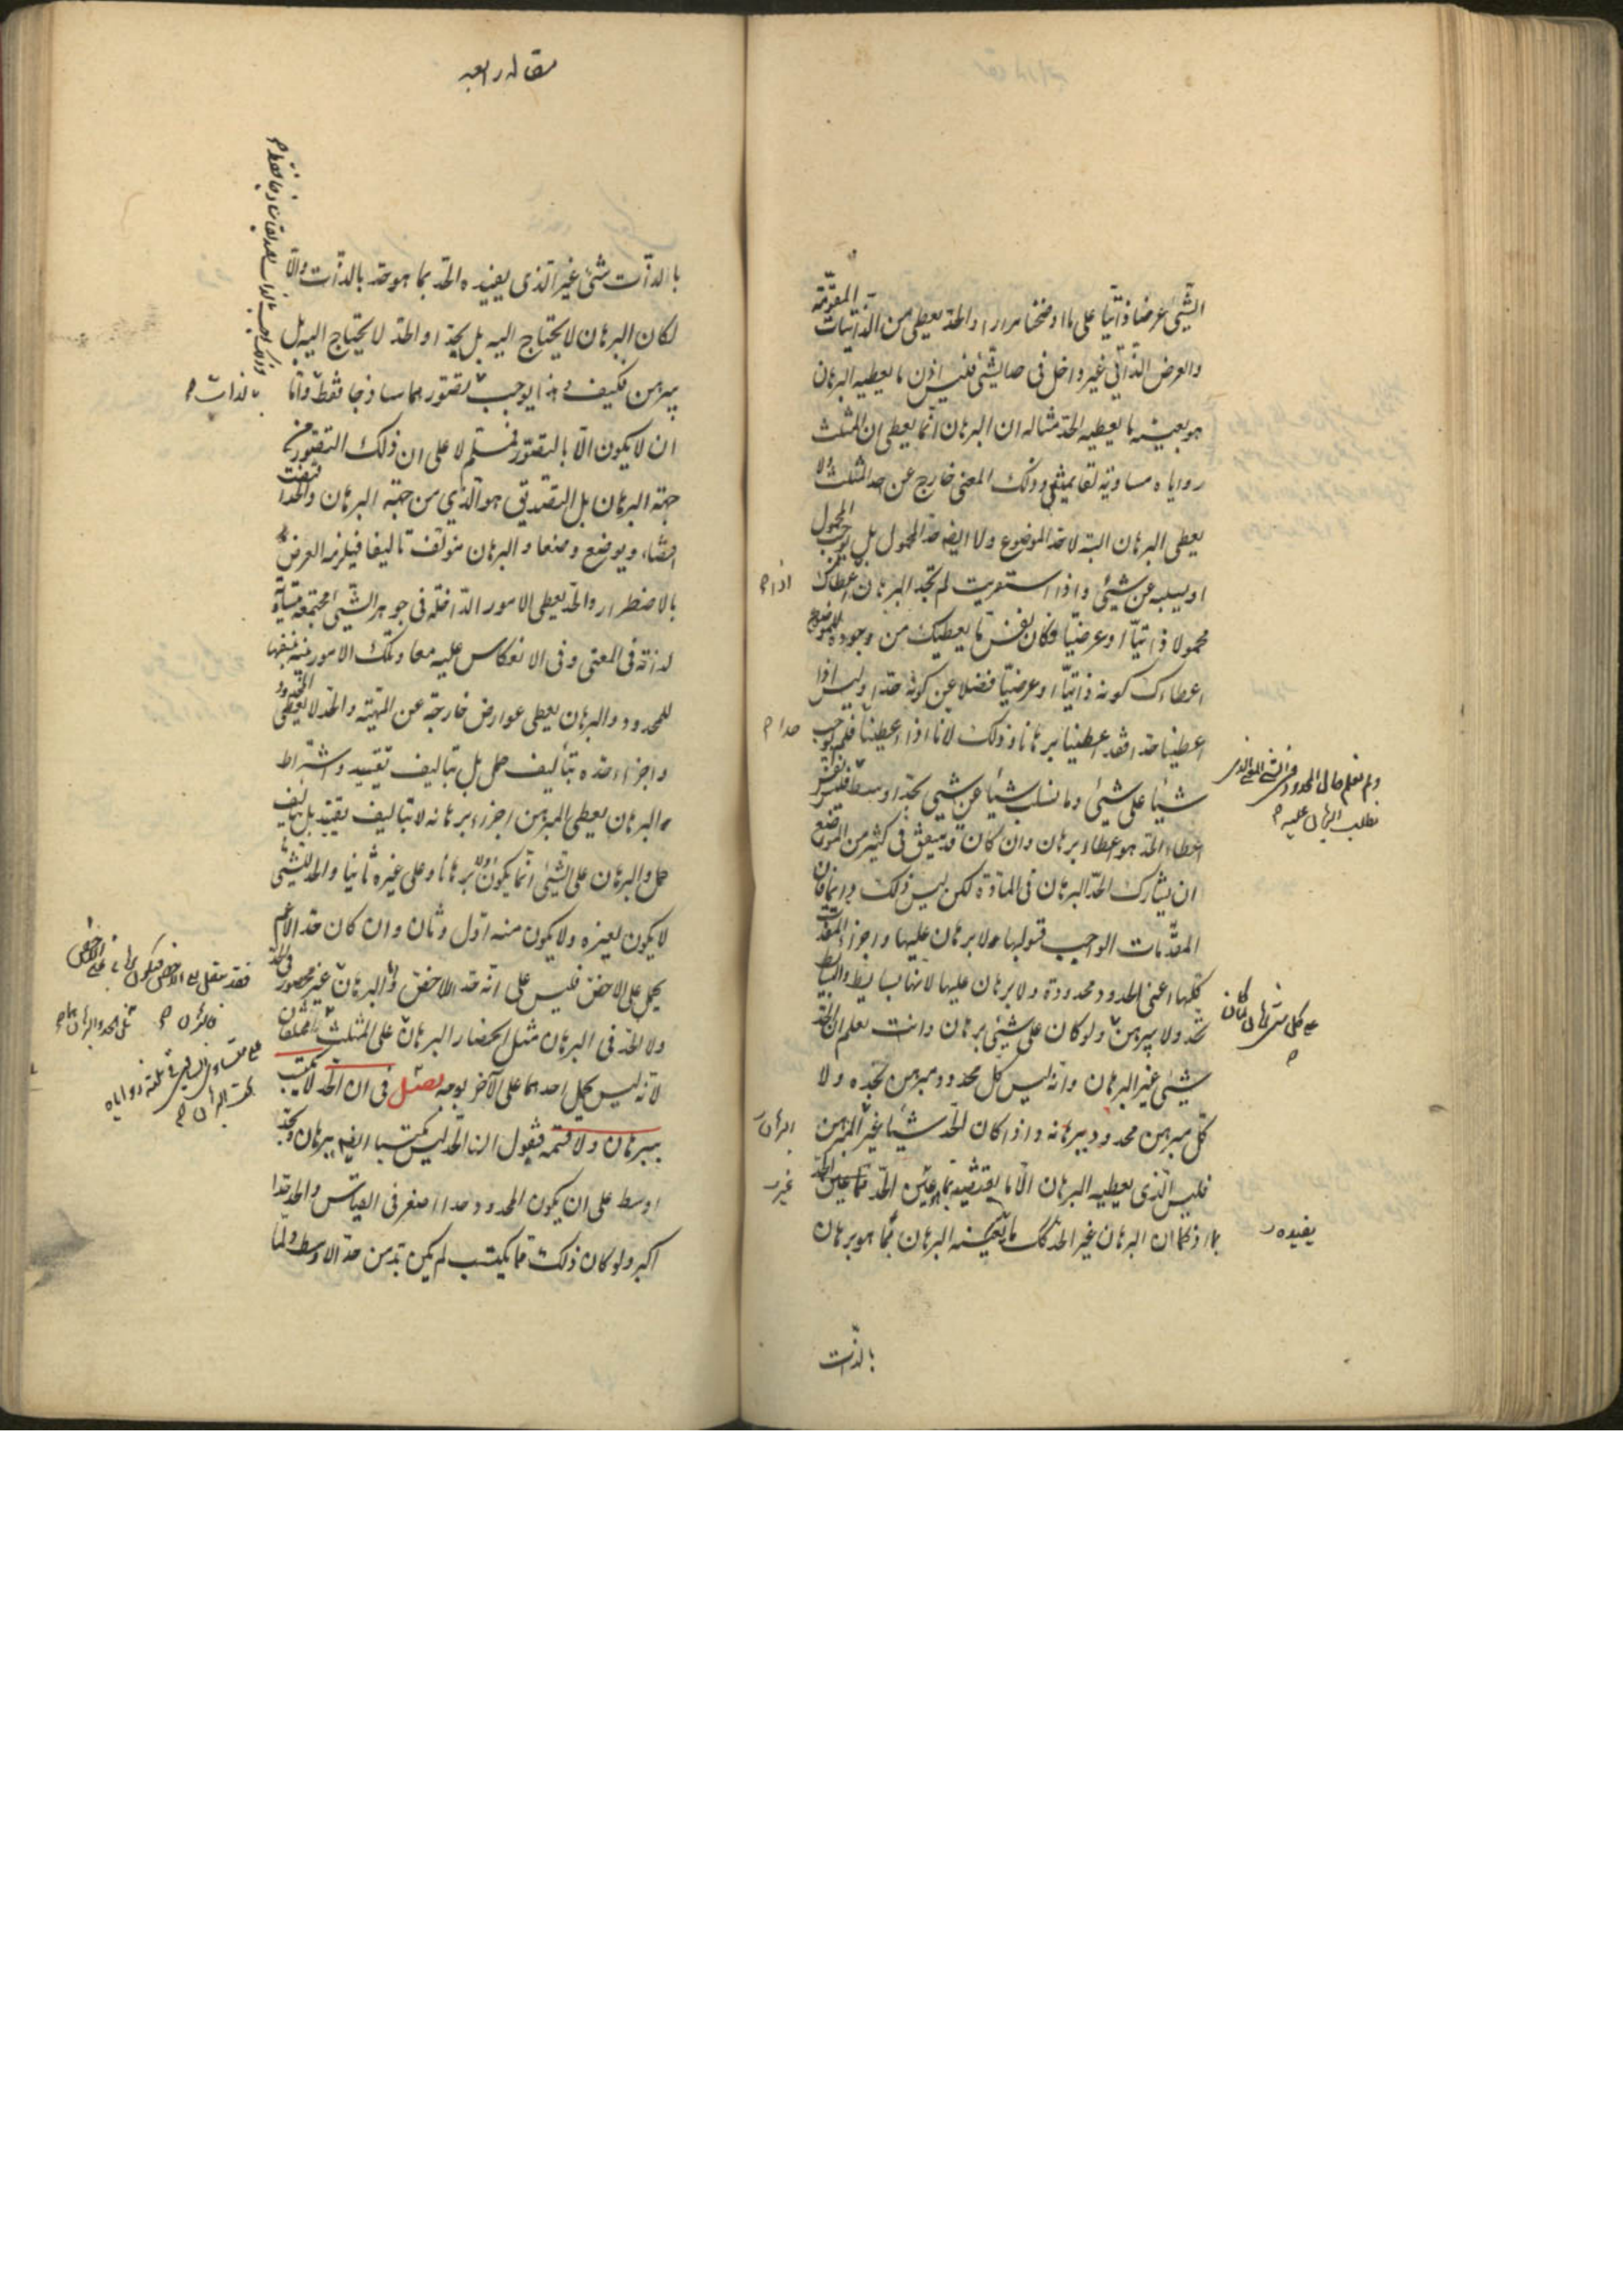 الشيء عرضا ذاتيا على ما اوضحنا مرارا والحد يعطى من الذاتيات المقومة
والعرض الذاتي غير داخل في حد الشيء فليس اذن ما يعطيه البرهان
هو بعينه ما يعطيه الحد مثاله ان البرهان انما يعطى ان المثلث
زواياه مساوية لقائمتين وذلك المعنى خارج عن حد المثلث ولا
يعطى البرهان البتة لا حد الموضوع ولا ايضا حد المحمول بل يوجب المحمول
او يسلبه عن شيء واذا استقريت لم تجد البرهان اعطاك
محمولا ذاتيا او عرضيا فكان نفس ما يعطيك من وجوده للموضوع
اعطاءك كونه ذاتيا او عرضيا فضلا عن كونه حدا وليس اذا
اعطينا حدا فقد اعطينا برهانا وذلك لانا اذا اعطينا فلم نوجب
شيئا على شيء وما نسلب شيئا عن شيء بحد اوسط فليس نفس
اعطاء الحد هو اعطاء برهان وان كان قد يتفق في كثير من المواضع
ان يشارك الحد البرهان في المادة لكن ليس ذلك دائما فان
المقدمات الواجب قبولها ولا برهان عليها واجزاء المقدمات
كلها اعنى الحدود محدودة ولا برهان عليها لانها بسايط والبسايط
تحد ولا يبرهن ولو كان على شيء برهان وانت تعلم ان الحد
شيء غير البرهان وانه ليس كل محدود مبرهن بحده ولا
كل مبرهن محدود ببرهانه واذا كان الحد شيئا غير المبرهن
فليس الذي يعطيه البرهان الا ما يقتضيه
بما اذ كما ان البرهان غير الحد كك ما يعينه البرهان بما هو برهان
بالذات
اذا م
حدا م
البرهان
غير
ولم نعلم حال المحدود
نطلب البرهان عليه م
على كل شيء برهان لكان
م
يفيده
مقاله رابعه
بالذات شيء غير الذي يفيده الحد بما هو حد بالذات والا
لكان البرهان لا يحتاج اليه بل يحد او الحد لا يحتاج اليه بل
يبرهن فكيف وهذا يوجب تصور هما ساذجا فقط واما
ان لا يكون الا بالتصور فمسلم لا على ان ذلك التصور من
جهة البرهان بل التصديق هو الذي من جهة البرهان والحد
اقتضاء ويوضع وضعا والبرهان مؤلف تاليفا فيلزمه العرض
بالاضطرار والحد يعطى الامور الداخلة في جوهر الشيء مجتمعة مساوية
لذاته في المعنى وفي الانعكاس عليه معا وتلك الامور بينة بنفسها
للمحدود والبرهان يعطى عوارض خارجة عن المهية والحد لا يعطى المحدود
واجزاء حده بتأليف حمل بل بتاليف تقييد واشتراط
والبرهان يعطى المبرهن اجزاء برهانه لا بتاليف تقييد بل بتأليف
حمل والبرهان على الشيء انما يكون اولا برهانا وعلى غيره ثانيا والحد للشيء
لا يكون لغيره ولا يكون منه اول وثان وان كان حد الاعم
يحمل على الاخص فليس على انه حد الاخص والبرهان غير محصور في الحد
ولا الحد في البرهان مثل انحصار البرهان على المثلث
لانه ليس يحمل احدهما على الآخر بوجه فصل في ان الحد لا يكتسب
ببرهان ولا قسمة فنقول ان الحد ليس يكتسب ايضا ببرهان وبحد
اوسط على ان يكون المحدود حدا اصغر في القياس والحد حدا
اكبر ولو كان ذلك مما يكتسب لم يكن بد من حد الاوسط ولما
بالذات م
فقد ينقل الى الاخص فيكون
فالبرهان م
الحد والبرهان
ثلثة زواياه
البرهان م